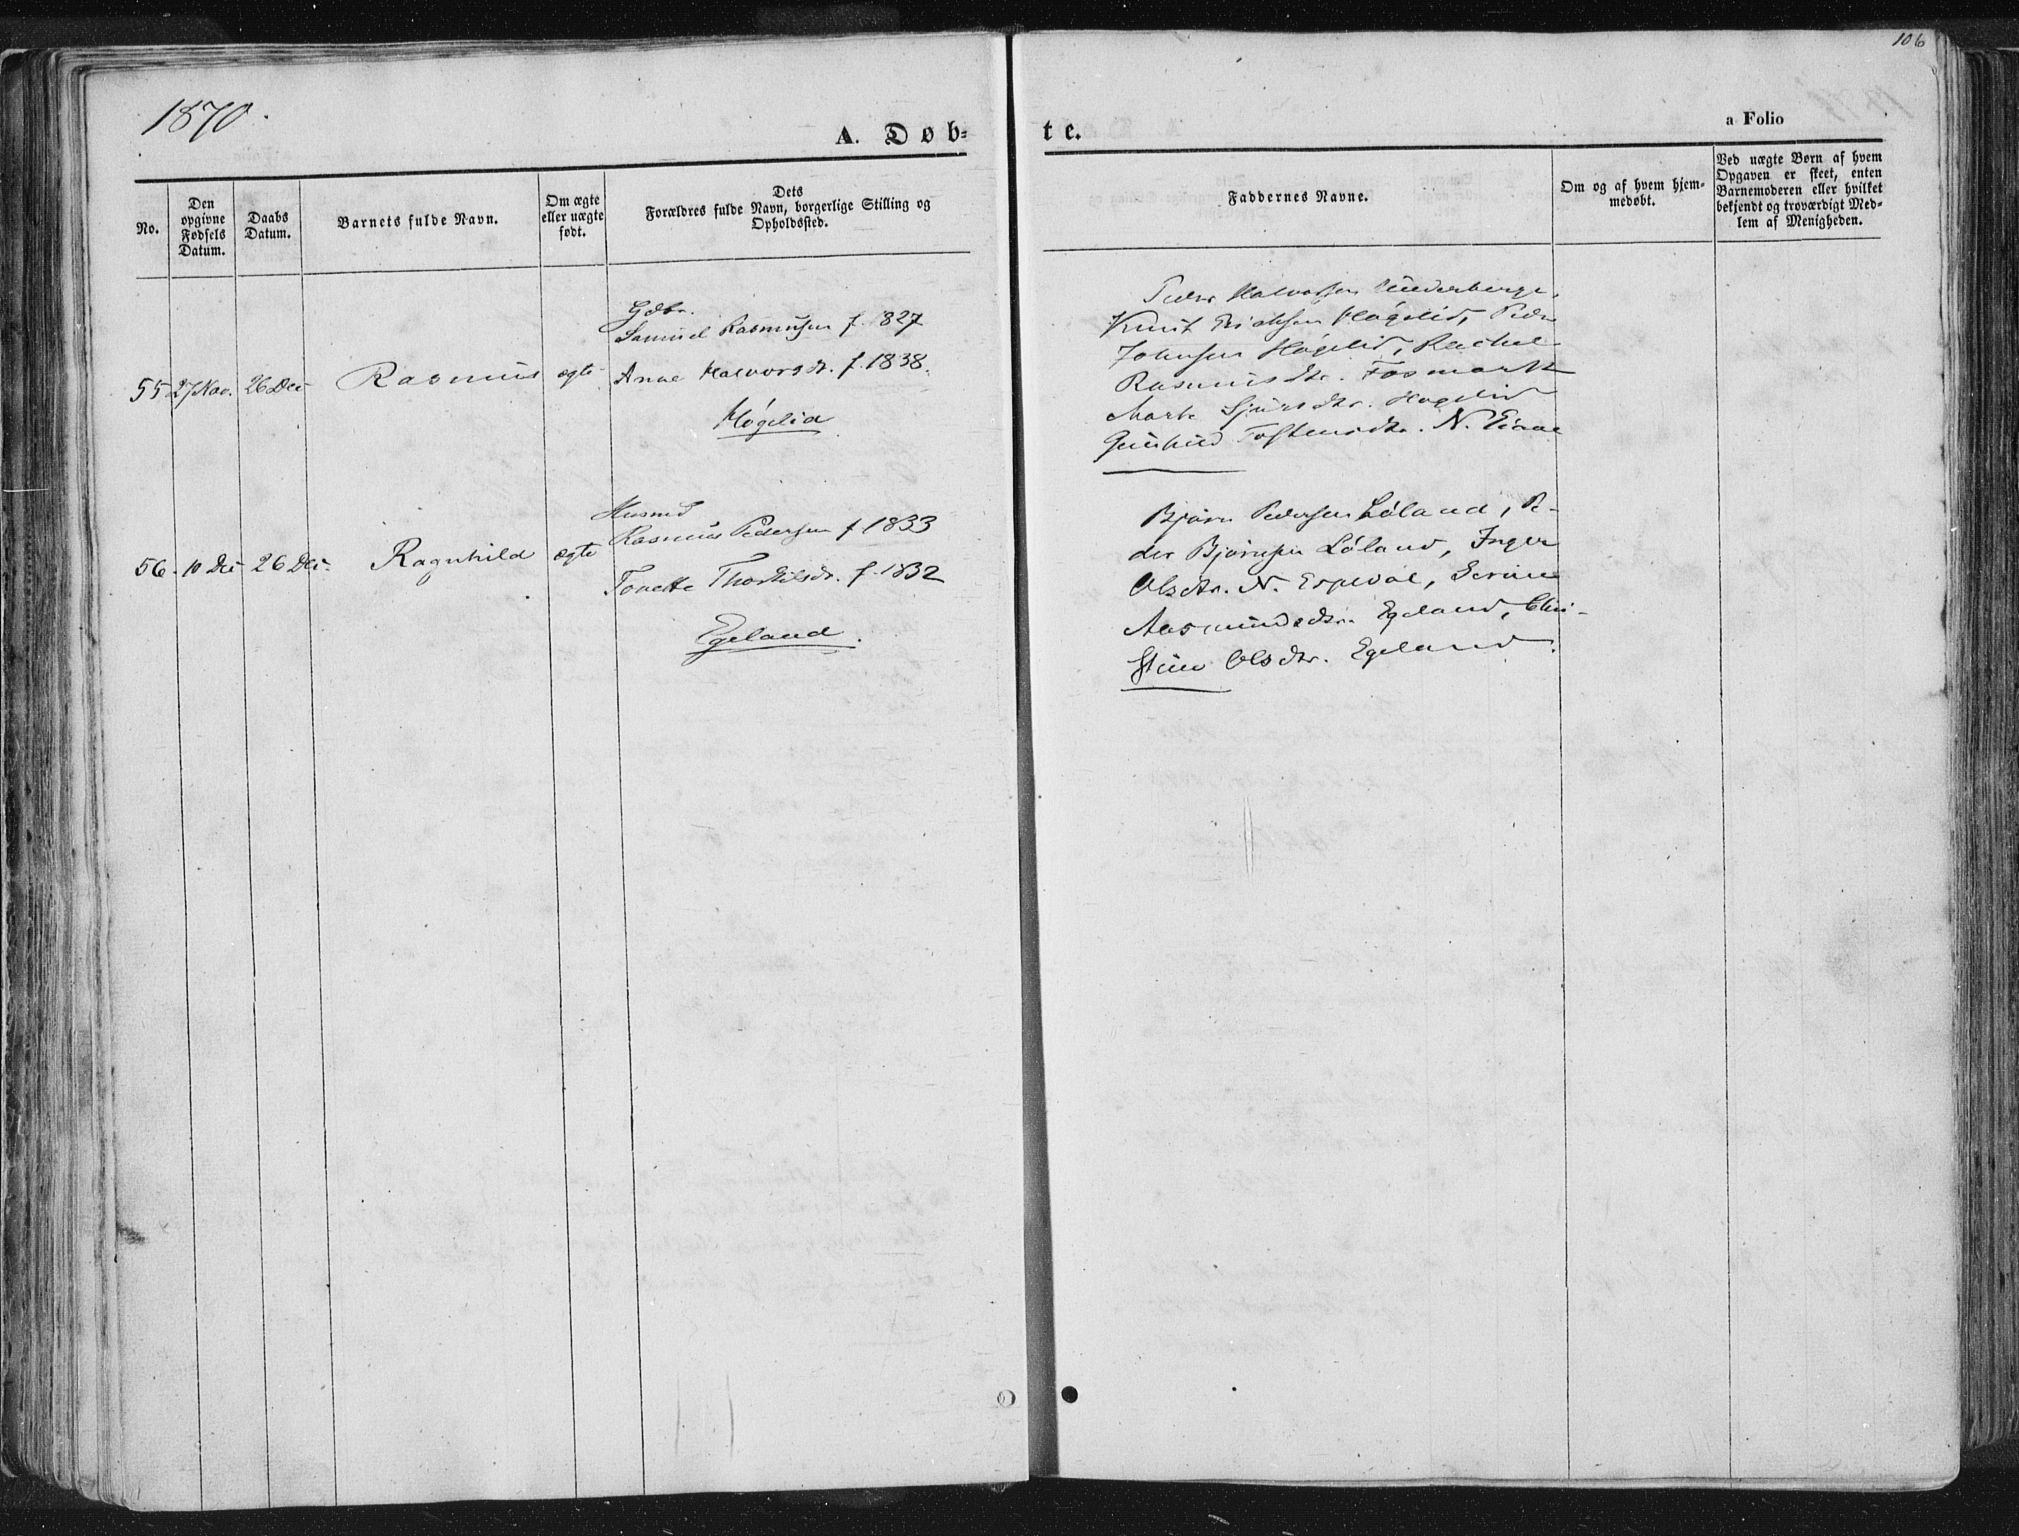 106
1870.
A. Døb=
te.
a Folio
No.
Den
opgivne
Fødsels
Datum.
Daabs
Datum.
Barnets fulde Navn.
Om ægte
eller uægte
født.
Dets
Forældres fulde Navn, borgerlige Stilling og
Opholdssted.
Faddernes Navne.
Om og af hvem hjem-
medøbt.
Ved uægte Børn af hvem
Opgaven er skeet, enten
Barnemoderen eller hvilket
bekjendt og troværdigt Med-
lem af Menigheden.
55 27 Nov. 26 Dec Rasmus ægte
Gdbr.
Samuel Rasmussen f. 1827
Anne Halvorsdr. f. 1838.
Høgelid
Peder Halvorsen
Knut Høgelid, Peder
Johnsen Høgelid, Rachel
Rasmusdtr. Fosmark
Sjursdtr. Høgelid
Gunhild Tostensdtr. N. Eiane
56. 10 Dec 26 Dec. Ragnhild ægte
Husmd
Rasmus Pedersen f 1833
Tonette Thorkilsdr. f. 1832
Egeland.
Bjørn Pedersen Løland, Pe-
der Bjørnsen Løland, Inger
Olsdtr. N. Espedal, Serine
Aasmundsdtr. Egeland, Chri-
stine Olsdtr. Egeland.